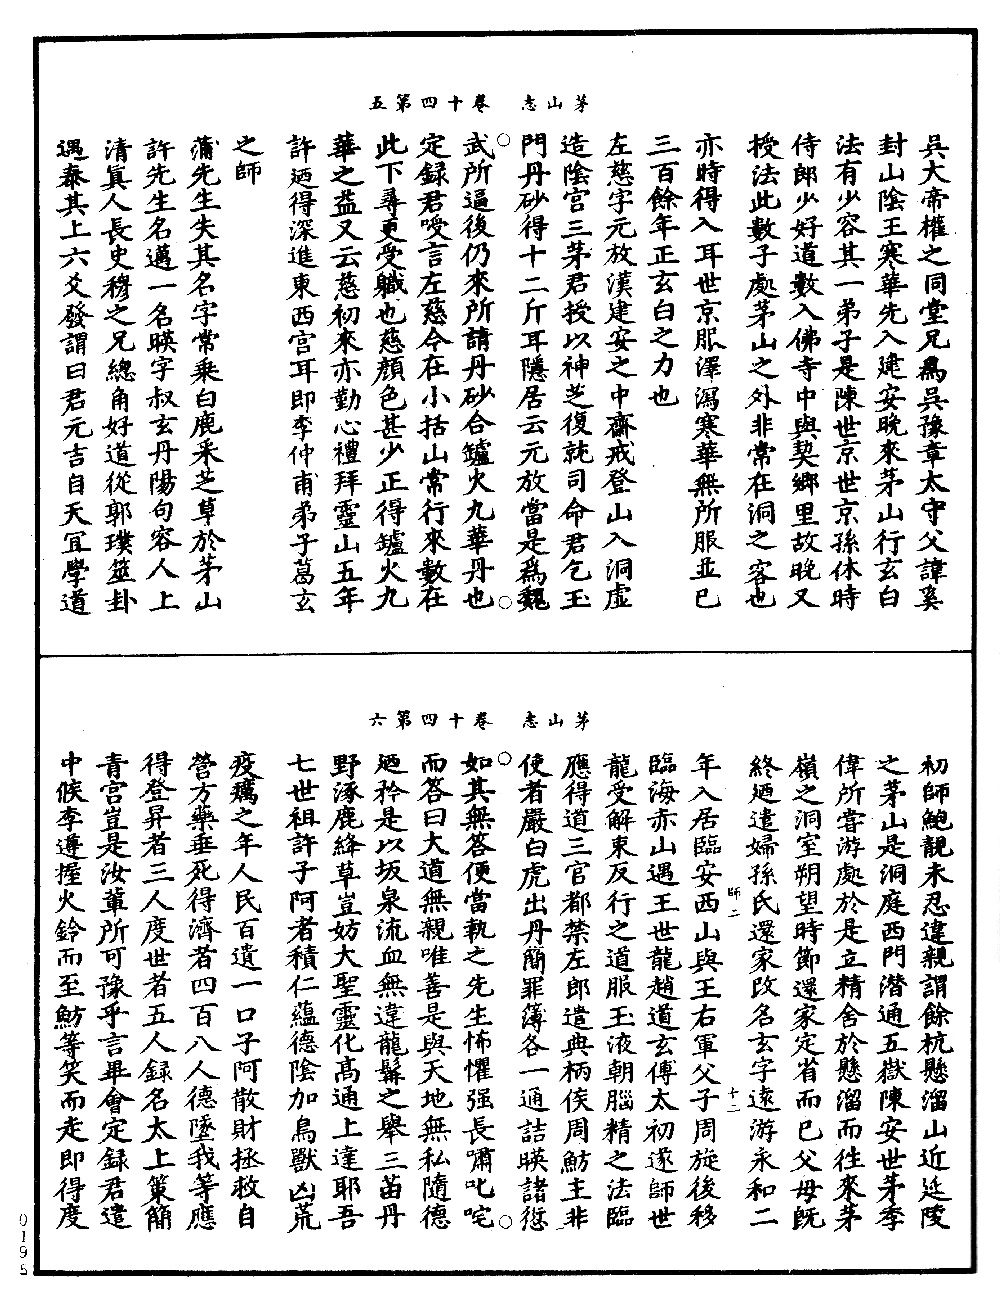 茅山志　卷十四第五
吳大帝權之同堂兄爲吳豫章太守父諱奚
封山陰王寒華先入建安晚來茅山行玄白
法有少容其一弟子是陳世京世京孫休時
侍郎少好道數入佛寺中與契鄉里故晚又
授法此數子處茅山之外非常在洞之客也
亦時得入耳世京服澤瀉寒華無所服並已
三百餘年正玄白之力也
左慈字元放漢建安之中齋戒登山入洞虛
造陰宮三茅君授以神芝復就司命君乞玉
門丹砂得十二斤耳隱居云元放當是爲魏
武所逼後仍來所請丹砂合鑪火九華丹也
定録君嘆言左慈今在小括山常行來數在
此下尋更受職也慈顏色甚少正得鑪火九
華之益又云慈初來亦勤心禮拜靈山五年
許廼得深進東西宮耳即李仲甫弟子葛玄
之師
蒲先生失其名字常乗白鹿采芝草於茅山
許先生名邁一名暎字叔玄丹陽句容人上
清真人長史穆之兄總角好道從郭璞筮卦
遇泰其上六爻發謂曰君元吉自天冝學道
茅山志　卷十四第六
初師鮑靚未忍違親謂餘杭懸溜山近延陵
之茅山是洞庭西門潛通五嶽陳安世茅季
偉所嘗游處於是立精舍於懸溜而徃來茅
嶺之洞室朔望時節還家定省而已父母既
終廼遣婦孫氏還家改名玄字遠游永和二
師二　十二
年入居臨安西山與王右軍父子周旋後移
臨海赤山遇王世龍趙道玄傅太初遂師世
龍受解束反行之道服玉液朝腦精之法臨
應得道三官都禁左郎遣典柄侯周魴主非
使者嚴白虎出丹簡罪簿各一通詰暎諸愆
如其無答便當執之先生怖懼强長嘯叱咤
而答曰大道無親唯善是與天地無私隨德
廼矜是以坂泉流血無違龍髯之舉三苗丹
野涿鹿絳草豈妨大聖靈化髙通上達耶吾
七世祖許子阿者積仁蘊德陰加鳥獸凶荒
疫癘之年人民百遺一口子阿散財拯救自
營方藥垂死得濟者四百八人德墜我等應
得登昇者三人度世者五人録名太上策簡
青宮豈是汝輩所可豫乎言畢會定録君遣
中候李遵握火鈴而至魴等笑而走即得度
0195